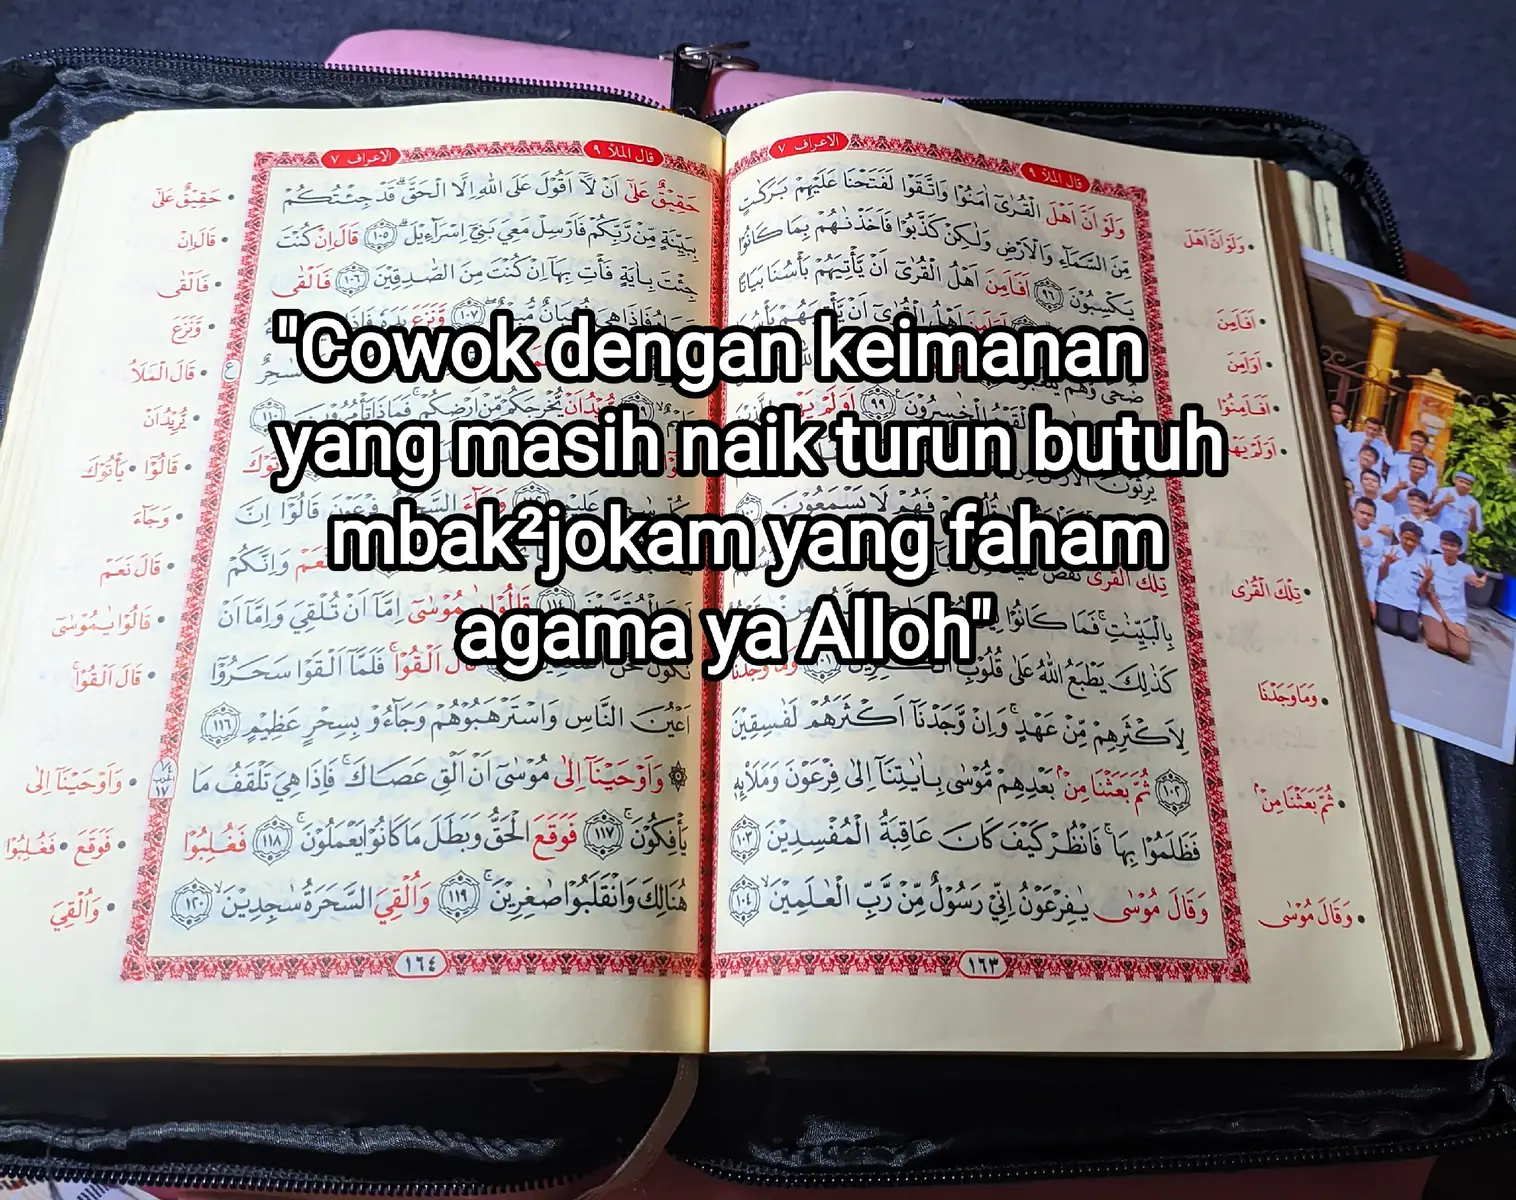 "Cowok dengan keimanan
yang masih naik turun butuh
mbak²jokam yang faham
agama ya Alloh"
قال الملأ ٩
الاعراف ٧
وَلَوْ اَنَّ اَهْلَ الْقُرٰٓى اٰمَنُوْا وَاتَّقَوْا لَفَتَحْنَا عَلَيْهِمْ بَرَكٰتٍ
مِّنَ السَّمَاۤءِ وَالْاَرْضِ وَلٰكِنْ كَذَّبُوْا فَاَخَذْنٰهُمْ بِمَا كَانُوْا
يَكْسِبُوْنَ ٩٦ اَفَاَمِنَ اَهْلُ الْقُرٰٓى اَنْ يَّأْتِيَهُمْ بَأْسُنَا بَيَاتًا
تِلْكَ الْقُرٰى
كَذٰلِكَ يَطْبَعُ اللّٰهُ عَلٰى قُلُوْبِ
لِاَكْثَرِهِمْ مِّنْ عَهْدٍ وَاِنْ وَّجَدْنَآ اَكْثَرَهُمْ لَفٰسِقِيْنَ
١٠٢ ثُمَّ بَعَثْنَا مِنْۢ بَعْدِهِمْ مُّوْسٰى بِاٰيٰتِنَآ اِلٰى فِرْعَوْنَ وَمَلَا۟ىِٕهٖ
فَظَلَمُوْا بِهَا فَانْظُرْ كَيْفَ كَانَ عَاقِبَةُ الْمُفْسِدِيْنَ ١٠٣
وَقَالَ مُوْسٰى يٰفِرْعَوْنُ اِنِّيْ رَسُوْلٌ مِّنْ رَّبِّ الْعٰلَمِيْنَ ١٠٤
١٦٣
وَلَوْ اَنَّ اَهْلَ
اَفَاَمِنَ
اَوَاَمِنَ
اَفَاَمِنُوْا
اَوَلَمْ يَهْدِ
تِلْكَ الْقُرٰى
وَمَا وَجَدْنَا
ثُمَّ بَعَثْنَا مِنْۢ
وَقَالَ مُوْسٰى
قال الملأ ٩
الاعراف ٧
حَقِيْقٌ عَلٰٓى اَنْ لَّآ اَقُوْلَ عَلَى اللّٰهِ اِلَّا الْحَقَّ قَدْ جِئْتُكُمْ
بِبَيِّنَةٍ مِّنْ رَّبِّكُمْ فَاَرْسِلْ مَعِيَ بَنِيْٓ اِسْرَاۤءِيْلَ ١٠٥ قَالَ اِنْ كُنْتَ
جِئْتَ بِاٰيَةٍ فَأْتِ بِهَآ اِنْ كُنْتَ مِنَ الصّٰدِقِيْنَ ١٠٦ فَاَلْقٰى
اَعْيُنَ النَّاسِ وَاسْتَرْهَبُوْهُمْ وَجَاۤءُوْ بِسِحْرٍ عَظِيْمٍ ١١٦
وَاَوْحَيْنَآ اِلٰى مُوْسٰٓى اَنْ اَلْقِ عَصَاكَ فَاِذَا هِيَ تَلْقَفُ مَا
يَأْفِكُوْنَ ١١٧ فَوَقَعَ الْحَقُّ وَبَطَلَ مَا كَانُوْا يَعْمَلُوْنَ ١١٨ فَغُلِبُوْا
هُنَالِكَ وَانْقَلَبُوْا صٰغِرِيْنَ ١١٩ وَاُلْقِيَ السَّحَرَةُ سٰجِدِيْنَ ١٢٠
١٦٤
حَقِيْقٌ عَلٰٓى
قَالَ اِنْ
فَاَلْقٰى
وَنَزَعَ
قَالَ الْمَلَاُ
يُرِيْدُ اَنْ
قَالُوْٓا • يَأْتُوْكَ
وَجَاۤءَ
قَالَ نَعَمْ
قَالُوْا يٰمُوْسٰٓى
قَالَ اَلْقُوْا
وَاَوْحَيْنَآ اِلٰى
فَوَقَعَ • فَغُلِبُوْا
وَاُلْقِيَ